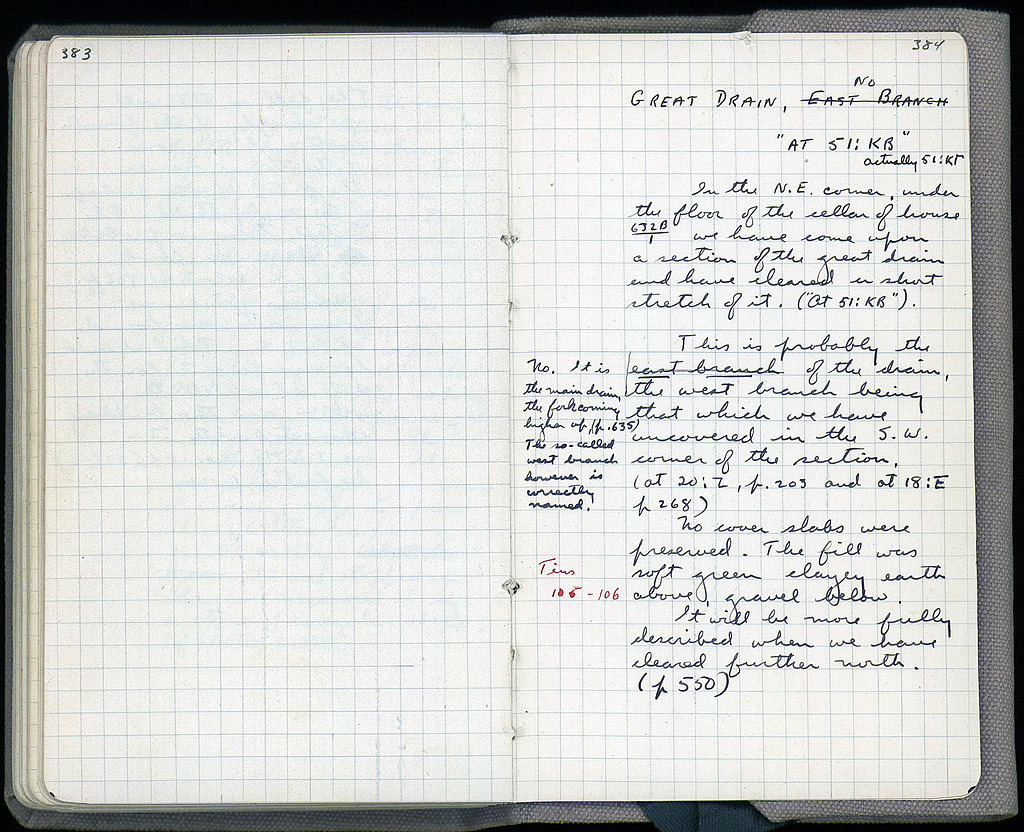 383
384
No
GREAT DRAIN, EAST BRANCH
"AT 51:KB"
actually 51:KΓ
In the N.E. corner, under
the floor of the cellar of house
632B/1 we have come upon
a section of the great drain
and have cleared a short
stretch of it. ("At 51:KB").
This is probably the
east branch of the drain,
the west branch being
that which we have
uncovered in the S.W.
corner of the section.
(at 20:Z, p. 203 and at 18:E
p 268)
No. It is
the main drain,
the fork coming
higher up, (p. 635)
The so-called
west branch
however is
correctly
named.
No cover slabs were
preserved. The fill was
soft green clayey earth
above, gravel below.
Tins
105-106
It will be more fully
described when we have
cleared further north.
(p 550)